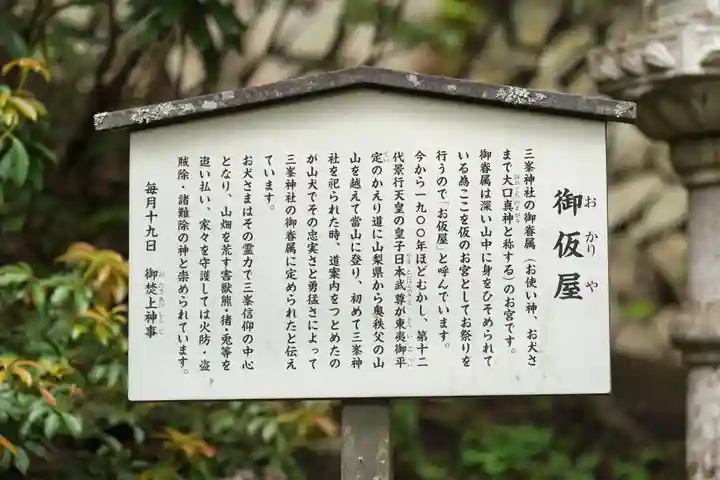 御仮屋
おかりや
三峯神社の御眷属（お使い神、お犬さ
まで大口真神と称する）のお宮です。
御眷属は深い山中に身をひそめられて
いる為ここを仮のお宮としてお祭りを
行うので「お仮屋」と呼んでいます。
今から一九〇〇年ほどむかし、第十二
代景行天皇の皇子日本武尊が東夷御平
定のかえり道に山梨県から奥秩父の山
山を越えて當山に登り、初めて三峯神
社を祀られた時、道案内をつとめたの
が山犬でその忠実さと勇猛さによって
三峯神社の御眷属に定められたと伝え
ています。
お犬さまはその霊力で三峯信仰の中心
となり、山畑を荒す害獣熊・猪・兎等を
追い払い、家々を守護しては火防・盗
賊除・諸難除の神と崇められています。
毎月十九日　御焚上神事